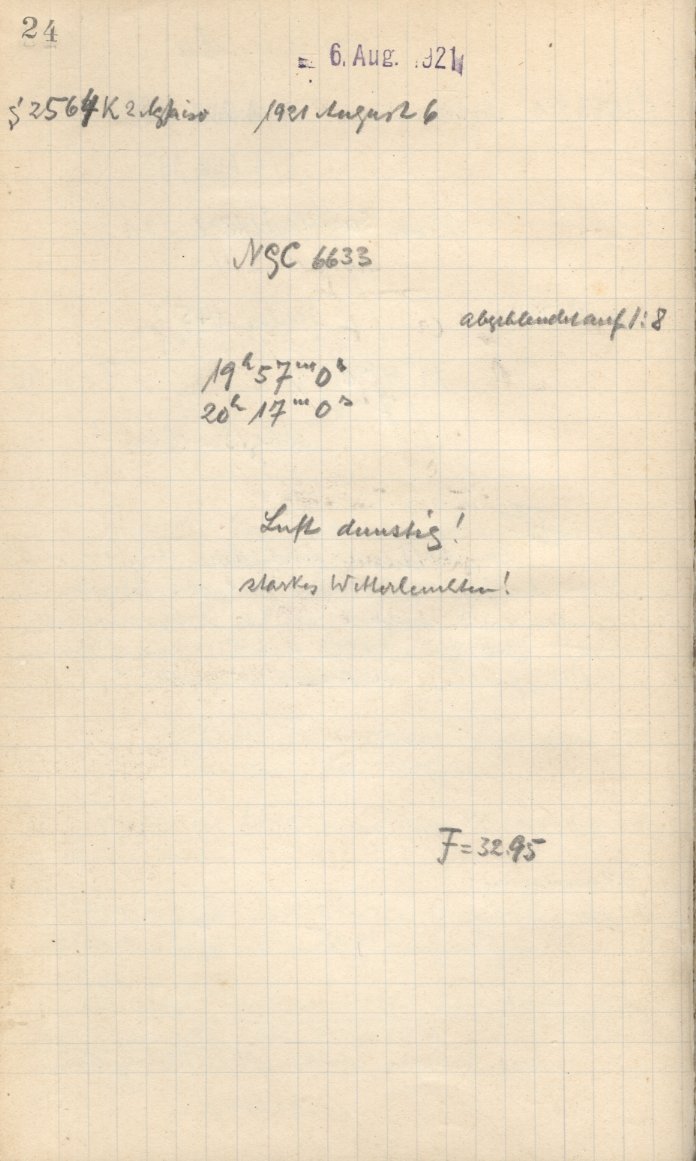 24
= 6. Aug. 1921
§ 2564 K 2 Agfaiso 1921 August 6
NGC 6633
abgeblendet auf 1:8
19ʰ 57ᵐ 0ˢ
20ʰ 17ᵐ 0ˢ
Luft dunstig!
starkes Wetterleuchten!
F = 32.95